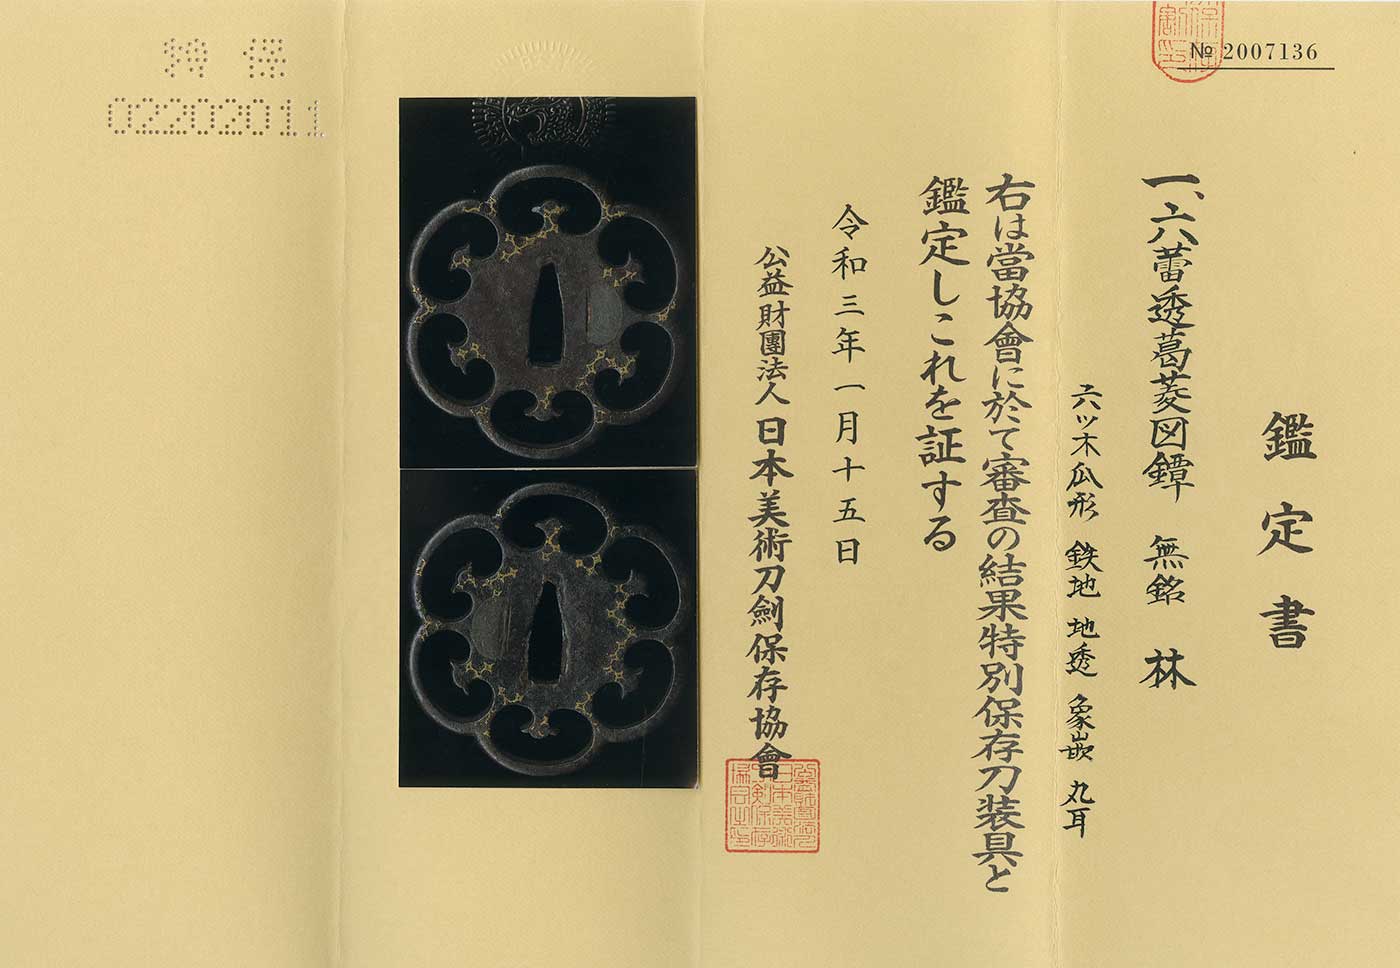 № 2007136
鑑定書
一、六蕾透葛菱図鐔 無銘 林
六ツ木瓜形 鉄地 地透 象嵌 丸耳
右は當協會に於て審査の結果特別保存刀装具と
鑑定しこれを証する
令和三年一月十五日
公益財團法人 日本美術刀劍保存協會
特保
02202011